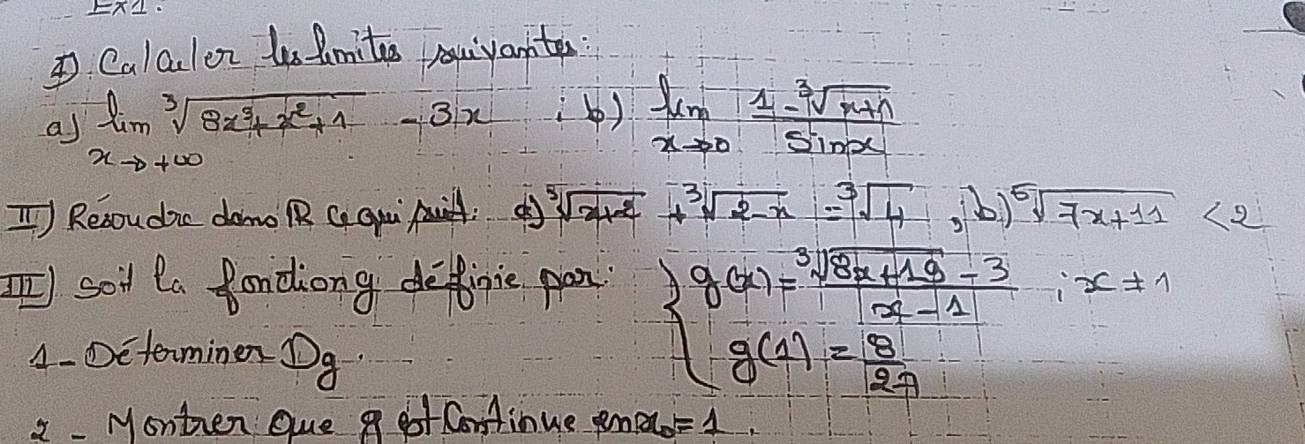 Ex1.
I) Calculer les limites suivantes:
a) lim_{x→+∞} ∛(8x³+x²+1) - 3x ; b) lim_{x→0} (1-∛(x+1))/Sinx
II) Résoudre dans ℝ ce qui suit: a) ∛(x+2) + ∛(2-x) = ∛4, b) ⁵√(7x+11) < 2
III) soit la fonction g définie par: { g(x) = (∛(8x+19) - 3)/(x-1) ; x≠1
1- Déterminer Dg. g(1) = 8/27
2- Montrer que g est Continue en x₀=1.